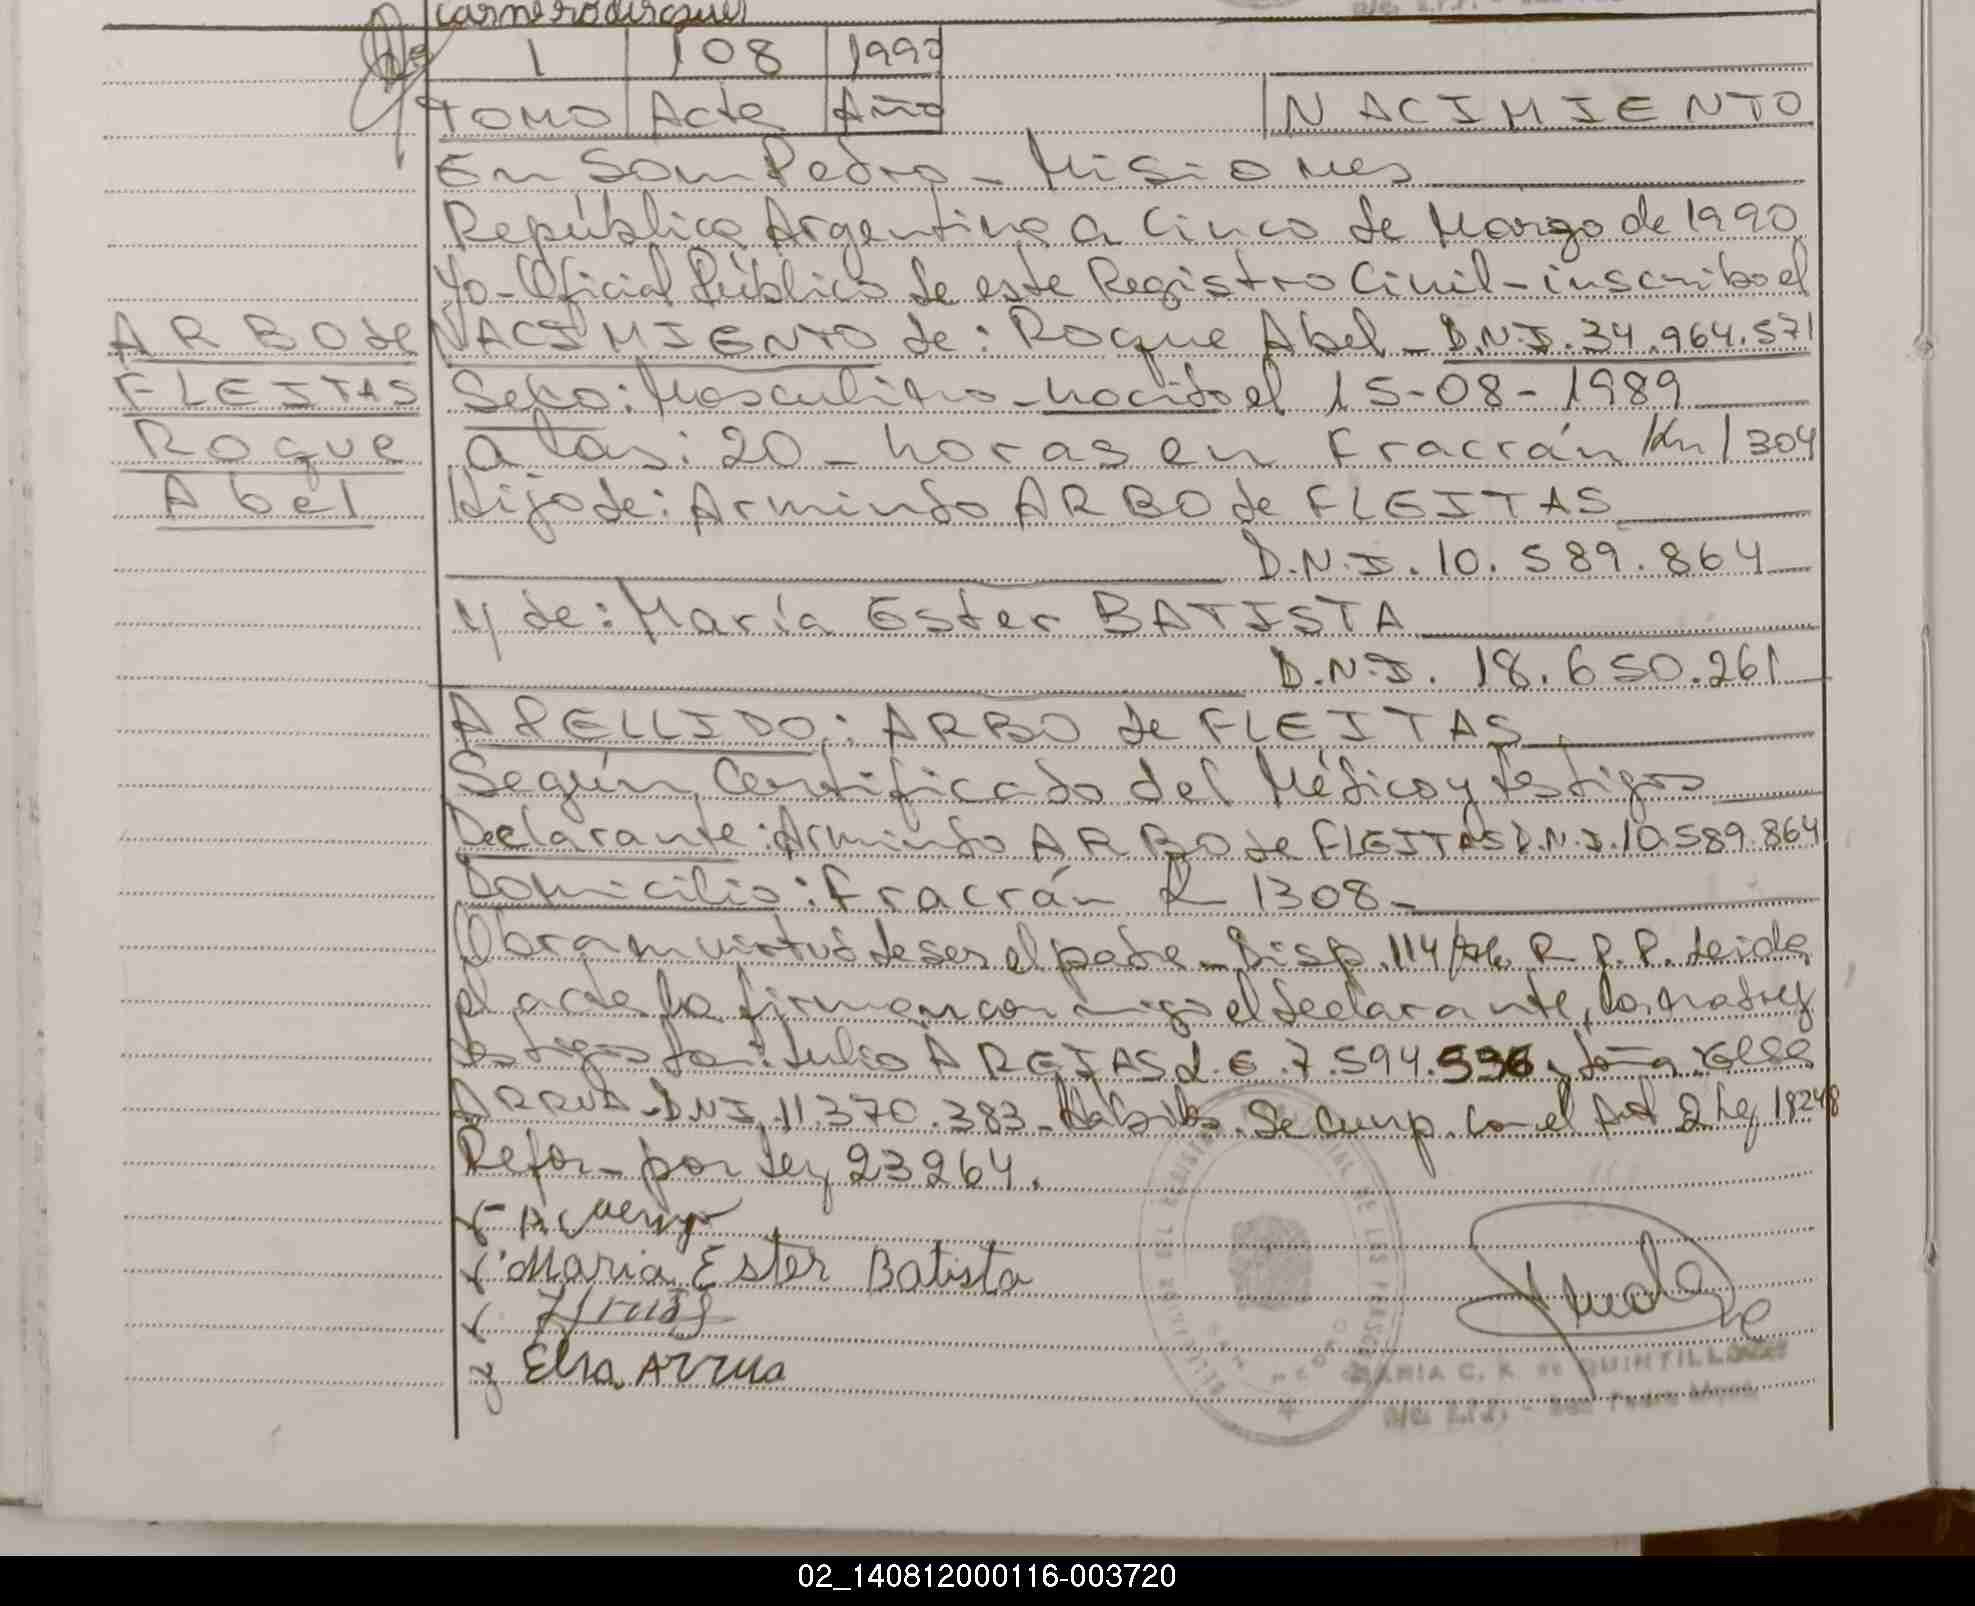 1 | 108 | 1990
TOMO | Acta | Año
NACIMIENTO
En San Pedro - Misiones
República Argentina a Cinco de Marzo de 1990
Yo - Oficial Público de este Registro Civil - inscribo el
NACIMIENTO de: Roque Abel - D.N.I. 34.964.571
Sexo: Masculino - nacido el 15-08-1989
a las: 20 - horas en Fracrán Km 1304
Hijo de: Armindo ARBO de FLEITAS
D.N.I. 10.589.864
y de: María Ester BATISTA
D.N.I. 18.650.261
APELLIDO: ARBO de FLEITAS
Según Certificado del Médico y testigos
Declarante: Armindo ARBO de FLEITAS D.N.I. 10.589.864
Domicilio: Fracrán R 1308 -
Obra en virtud de ser el padre - Disp. 114/ R.P.P. Leida
el acta la firman conmigo el declarante, la madre y
testigos Julio AREJAS L.E. 7.594.596
ARRUA - D.N.I. 11.370.383 - Hábiles. Se cump. con el Art 2 Ley 18248
Refor - por Ley 23264.
ARBO de
FLEITAS
Roque
Abel
Maria Ester Batista
Elsa Arrua
MARIA C. K. de QUINTILL
San Pedro
02_140812000116-003720